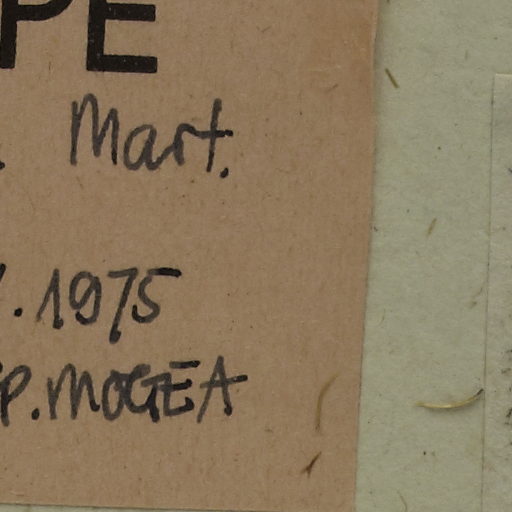 PE
. Mart.
.1975
P.MOGEA